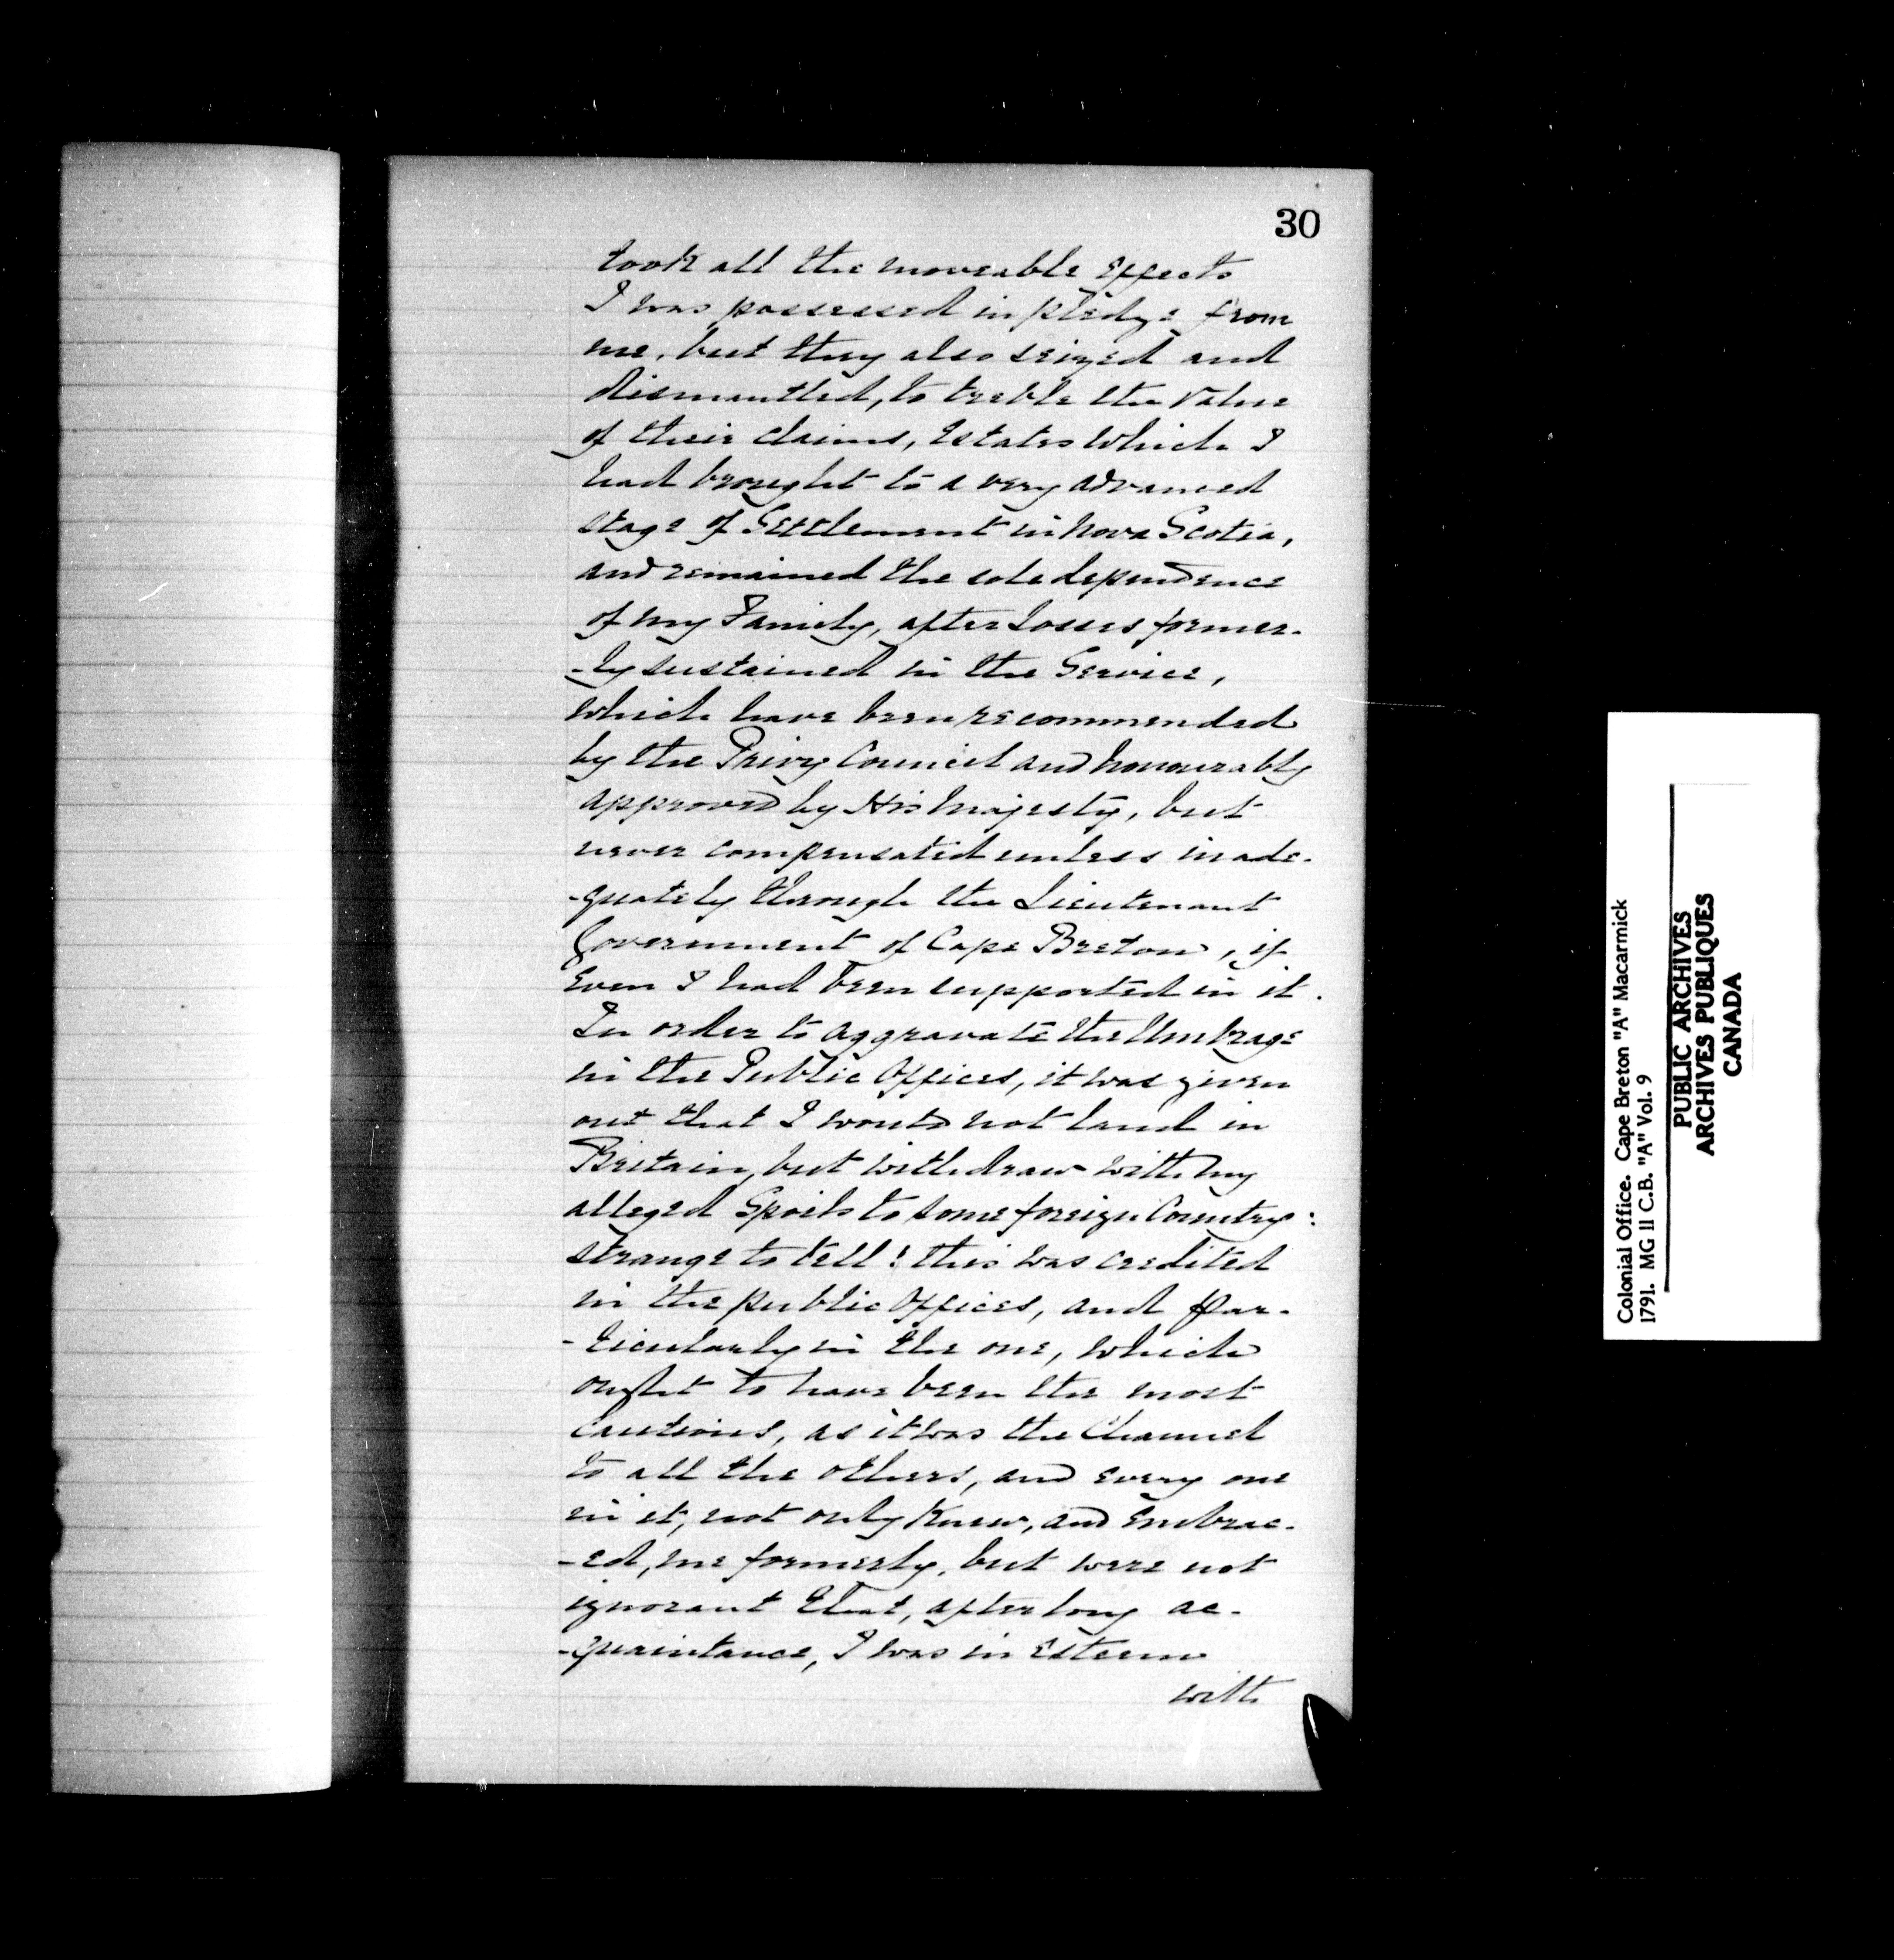 30
took all the moveable Effects
I was possessed in pledge from
me, but they also seized and
dismantled, to treble the Value
of their claims, Estates which I
had brought to a very advanced
stage of Settlement in Nova Scotia,
and remained the sole dependence
of my Family, after Losses former-
-ly sustained in the Service,
which have been recommended
by the Privy Council and honourably
approved by His Majesty, but
never compensated unless inade-
-quately through the Lieutenant
Government of Cape Breton, if
Even I had been supported in it.
In order to aggravate the Umbrage
in the Public Offices, it was given
out that I would not land in
Britain, but withdraw with my
alleged Spoils to some foreign Country:
strange to tell! this was credited
in the public Offices, and par-
-ticularly in the one, which
ought to have been the most
Cautious, as it was the Channel
to all the others, and every one
in it, not only Knew, and Embrac-
-ed, me formerly, but were not
ignorant that, after long ac-
-quaintance, I was in Esteem
with
Colonial Office. Cape Breton "A" Macarmick
1791. MG 11 C.B. "A" Vol. 9
PUBLIC ARCHIVES
ARCHIVES PUBLIQUES
CANADA